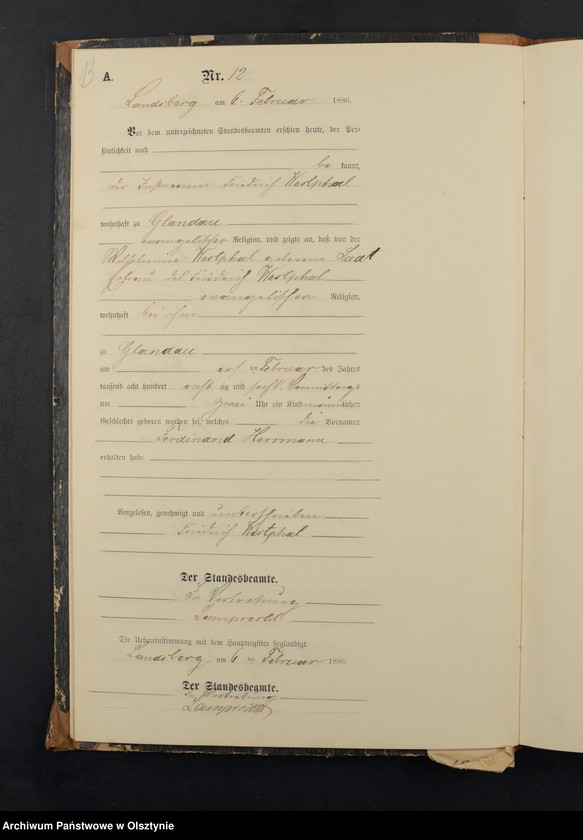 13
A.
Nr. 12
Landsberg am 6. Februar 1886.
Vor dem unterzeichneten Standesbeamten erschien heute, der Per-
sönlichkeit nach
be kannt,
der Instmann Friedrich Westphal
wohnhaft zu Glandau
evangelischer Religion, und zeigte an, daß von der
Wilhelmine Westphal geborene
Ehefrau des Friedrich Westphal
evangelischer Religion,
wohnhaft bei ihm
zu Glandau
am ten Februar des Jahres
tausend acht hundert acht zig und sechs Vormittags
um zwei Uhr ein Kind männlichen
Geschlechts geboren worden sei, welches die Vornamen
Ferdinand Herrmann
erhalten habe
Vorgelesen, genehmigt und unterschrieben
Friedrich Westphal
Der Standesbeamte.
In Vertretung
Lamprecht
Die Uebereinstimmung mit dem Hauptregister beglaubigt.
Landsberg am 6 ten Februar 1886.
Der Standesbeamte.
In Vertretung
Lamprecht
Archiwum Państwowe w Olsztynie